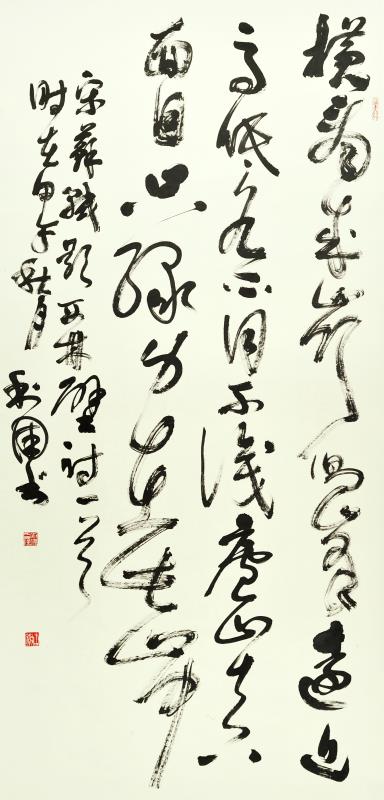 横看成岭侧成峰远近
高低各不同不识庐山真
面目只缘身在此山中
宋苏轼题西林壁诗一首
时在甲午秋月 利国书